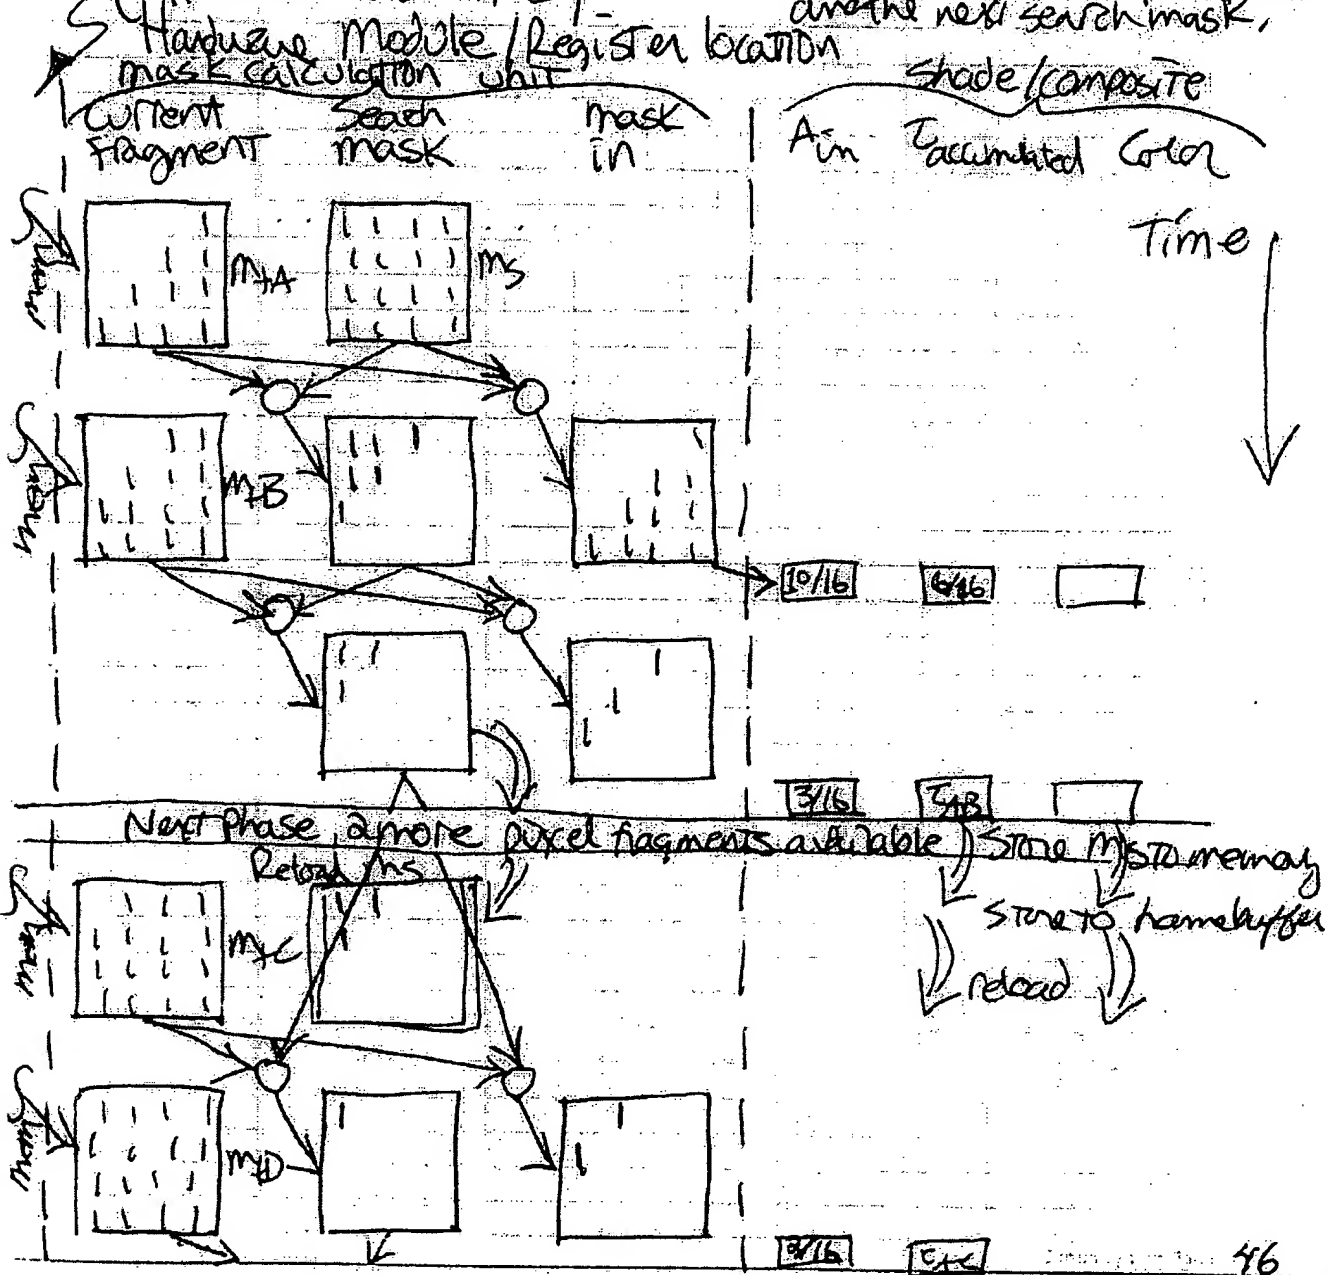 and the next search mask,
Hardware Module/Register location
mask calculation unit
Shade/composite
current fragment
Seach mask
mask in
A in
τ accumulated
Color
Time
new
MfA
MS
new
MfB
10/16
6/16
3/16
τAB
Next Phase 2 more pixel fragments available
Store Ms to memory
Reload ms
Store to framebuffer
reload
new
MfC
new
MfD
46